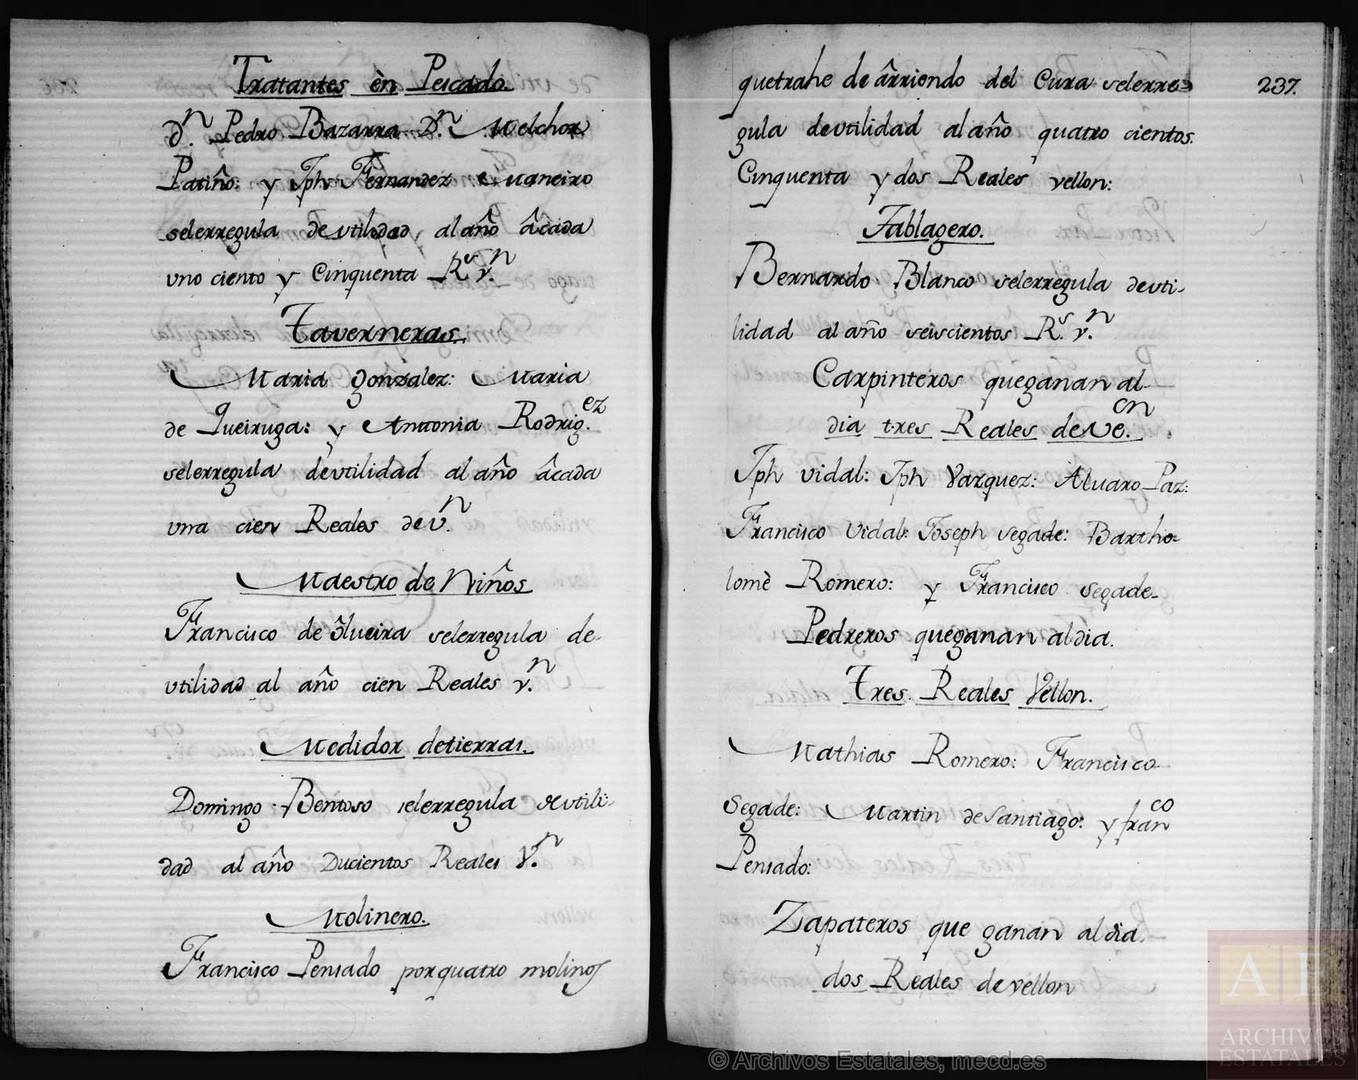 Tratantes èn Pescado.
dn. Pedro Bazarra Dn. Melchor
Patiño: y Jph Fernandez Maneiro
selerregula de vtilidad al año âcada
vno ciento y Cinquenta Rs vn.
Taverneras.
Maria gonzalez: Maria
de Queiruga: y Antonia Rodrig.ez
selerregula devtilidad al año âcada
vna cien Reales de vn.
Maestro de Niños
Francisco de Silueira selerregula de
vtilidad al año cien Reales vn.
Medidor detierras.
Domingo Bentoso selerregula devtili-
dad al año Ducientos Reales Vn.
Molinero.
Francisco Pensado porquatro molinos
quetrahe de ârriendo del Cura selerre=
237.
gula devtilidad al año quatro cientos
Cinquenta y dos Reales vellon:
Tablagero.
Bernardo Blanco selerregula devti-
lidad al año seiscientos Rs. vn.
Carpinteros queganan al-
dia tres Reales deVe.on
Jph vidal: Jph Vazquez: Alvaro Paz:
Francisco Vidal: Joseph segade: Bartho-
lomè Romero: y Francisco segade-
Pedreros queganan aldia.
Tres Reales Vellon.
Mathias Romero: Francisco
Segade: Martin deSantiago: y franco
Pensado:
Zapateros que ganan aldia
dos Reales de vellon
AE
ARCHIVOS
ESTATALES
© Archivos Estatales, mecd.es